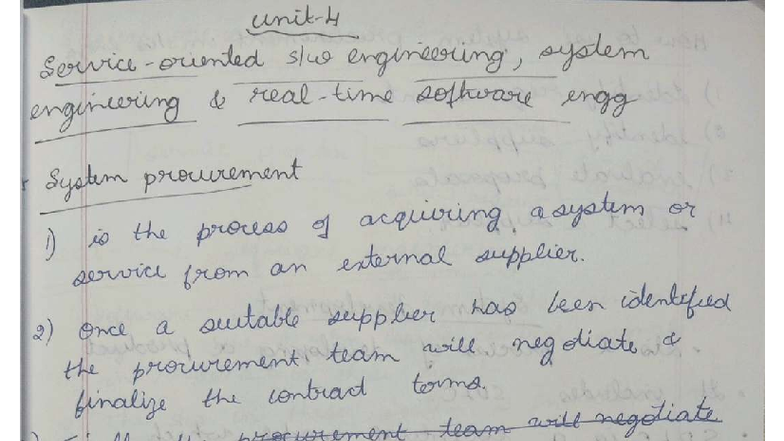 unit-4
Service-oriented s/w engineering, system
engineering & real-time software engg
System procurement
1) is the process of acquiring a system or
service from an external supplier.
2) once a suitable supplier has been identified
the procurement team will negotiate &
finalize the contract terms.
procurement team will negotiate